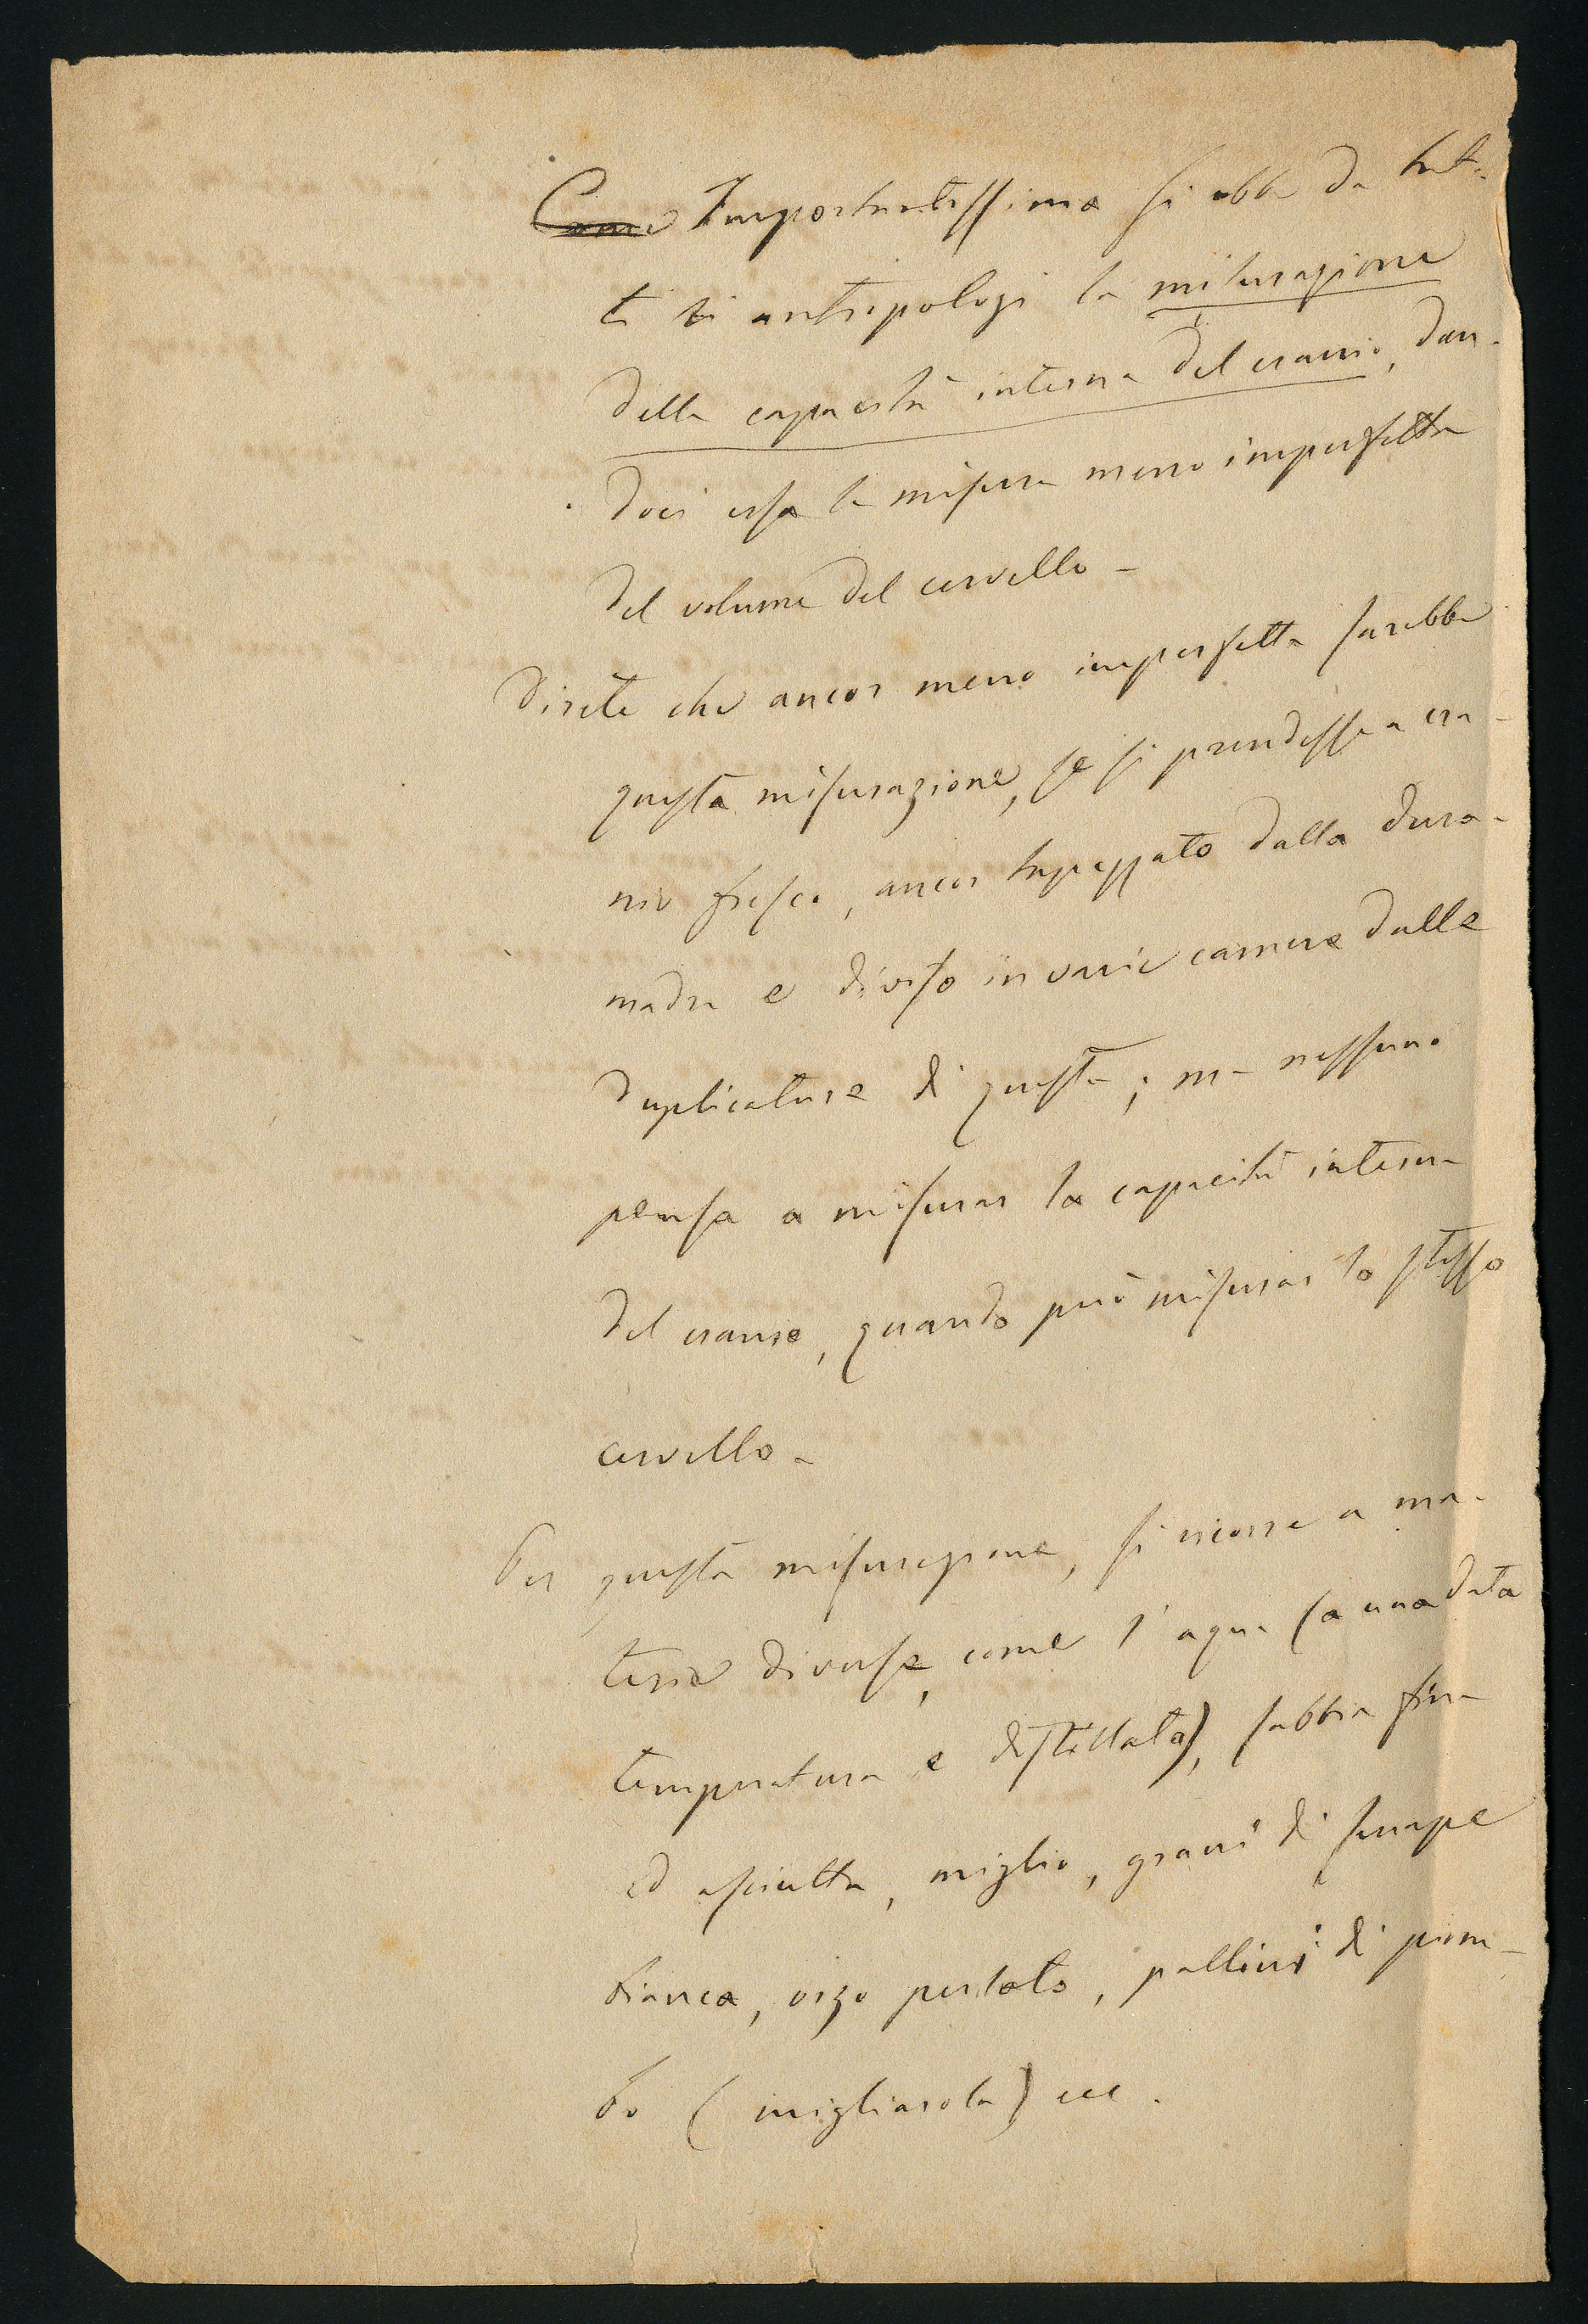 Come Importantissima si ebbe da tut-
ti gli antropologi la misurazione
della capacità interna del cranio, dan-
doci essa la misura meno imperfetta
del volume del cervello -
Direte che ancor meno imperfetta sarebbe
questa misurazione, se si prendesse a cra-
nio fresco, ancor tapezzato dalla dura-
madre e diviso in varie camere dalle
duplicature di questa; ma nessuno
pensa a misurar la capacità interna
del cranio, quando può misurar lo stesso
cervello -
Per questa misurazione, si ricorse a ma-
terie diverse, come l'aqua (a una data
temperatura e distillata), sabbia fina
ed asciutta, miglio, grani di senape
bianca, orzo perlato, pallini di piom-
bo (migliarola) ecc.